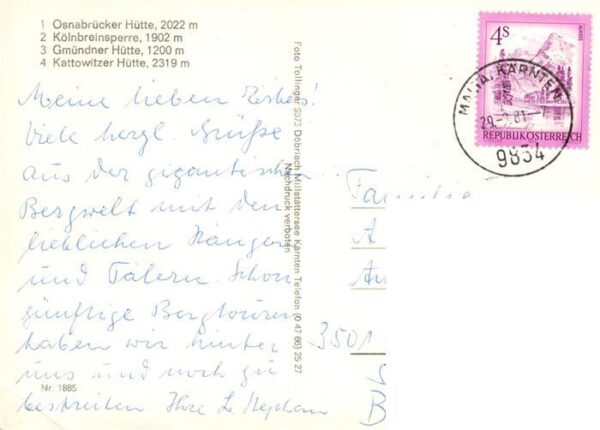 1 Osnabrücker Hütte, 2022 m
2 Kölnbreinsperre, 1902 m
3 Gmündner Hütte, 1200 m
4 Kattowitzer Hütte, 2319 m
Meine lieben
Viele herzl. Grüße
aus der gigantischen
Bergwelt mit den
lieblichen Hängen
und Tälern. Schon
günftige Bergtouren
haben wir hinter
uns und noch zu
bestreiten Ihre L.
Nr. 1885
Foto Tollinger 9873 Döbriach Millstättersee Kärnten Telefon (0 47 66) 25 27
Nachdruck verboten
4s
REPUBLIK ÖSTERREICH
MALTA, KÄRNTEN
9854
Familie
A
3501
B